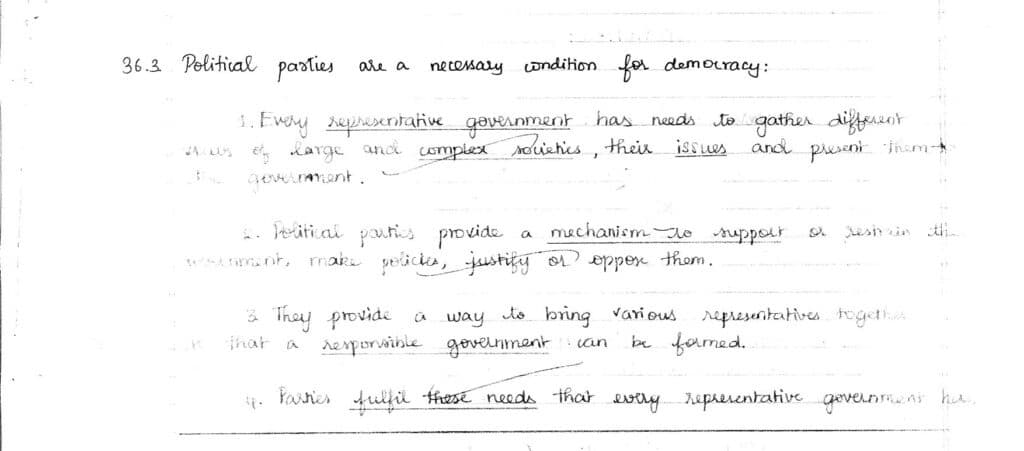 36.3 Political parties are a necessary condition for democracy:
1. Every representative government has needs to gather different
views of large and complex societies, their issues and present them
government.
2. Political parties provide a mechanism to support or restrain the
government, make policies, justify or oppose them.
3. They provide a way to bring various representatives together
that a responsible government can be formed.
4. Parties fulfil these needs that every representative government has.